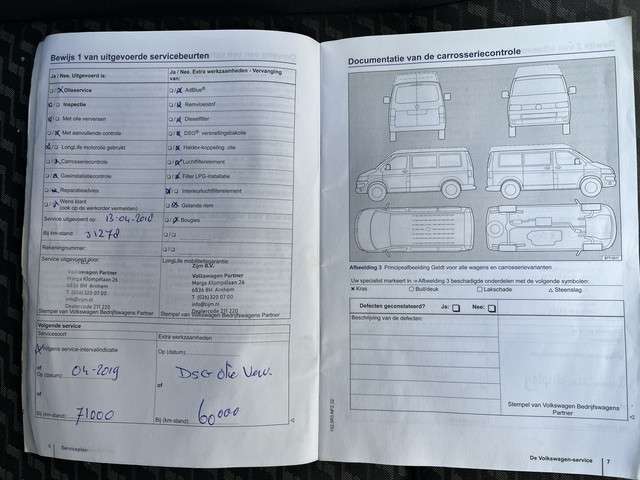 Bewijs 1 van uitgevoerde servicebeurten
Ja / Nee. Uitgevoerd is:
Olieservice
Inspectie
Met olie verversen
Met aanvullende controle
LongLife motorolie gebruikt
Carrosseriecontrole
Gasinstallatiecontrole
Reparatieadvies
Wens klant
(ook op de werkorder vermelden)
Service uitgevoerd op: 13-04-2018
Bij km-stand: 31278
Rekeningnummer:
Service uitgevoerd door:
Volkswagen Partner
Marga Klompélaan 26
6836 BH Arnhem
T (026) 320 07 00
Dealercode 211 220
Stempel van Volkswagen Bedrijfswagens Partner
Ja / Nee. Extra werkzaamheden - Vervanging
van:
AdBlue®
Remvloeistof
Dieselfilter
DSG® versnellingsbakolie
Haldex-koppeling: olie
Luchtfilterelement
Filter LPG-installatie
Interieurluchtfilterelement
Getande riem
Bougies
LongLife mobiliteitsgarantie
Zijm B.V.
Volkswagen Partner
Marga Klompélaan 26
6836 BH Arnhem
T (026) 320 07 00
Dealercode 211 220
Stempel van Volkswagen Bedrijfswagens Partner
Volgende service
Servicesoort
Volgens service-intervalindicatie
of
Op (datum): 04-2019
of
Bij (km-stand): 71000
Extra werkzaamheden
Op (datum):
DSG olie Verv.
of
Bij (km-stand): 60000
6 Serviceplan
Documentatie van de carrosseriecontrole
Afbeelding 3 Principeafbeelding Geldt voor alle wagens en carrosserievarianten
Uw specialist markeert in ⇒ Afbeelding 3 beschadigde onderdelen met de volgende symbolen:
× Kras
○ Buil/deuk
□ Lakschade
△ Steenslag
Defecten geconstateerd? Ja: Nee:
Beschrijving van de defecten:
Stempel van Volkswagen Bedrijfswagens
Partner
De Volkswagen-service 7